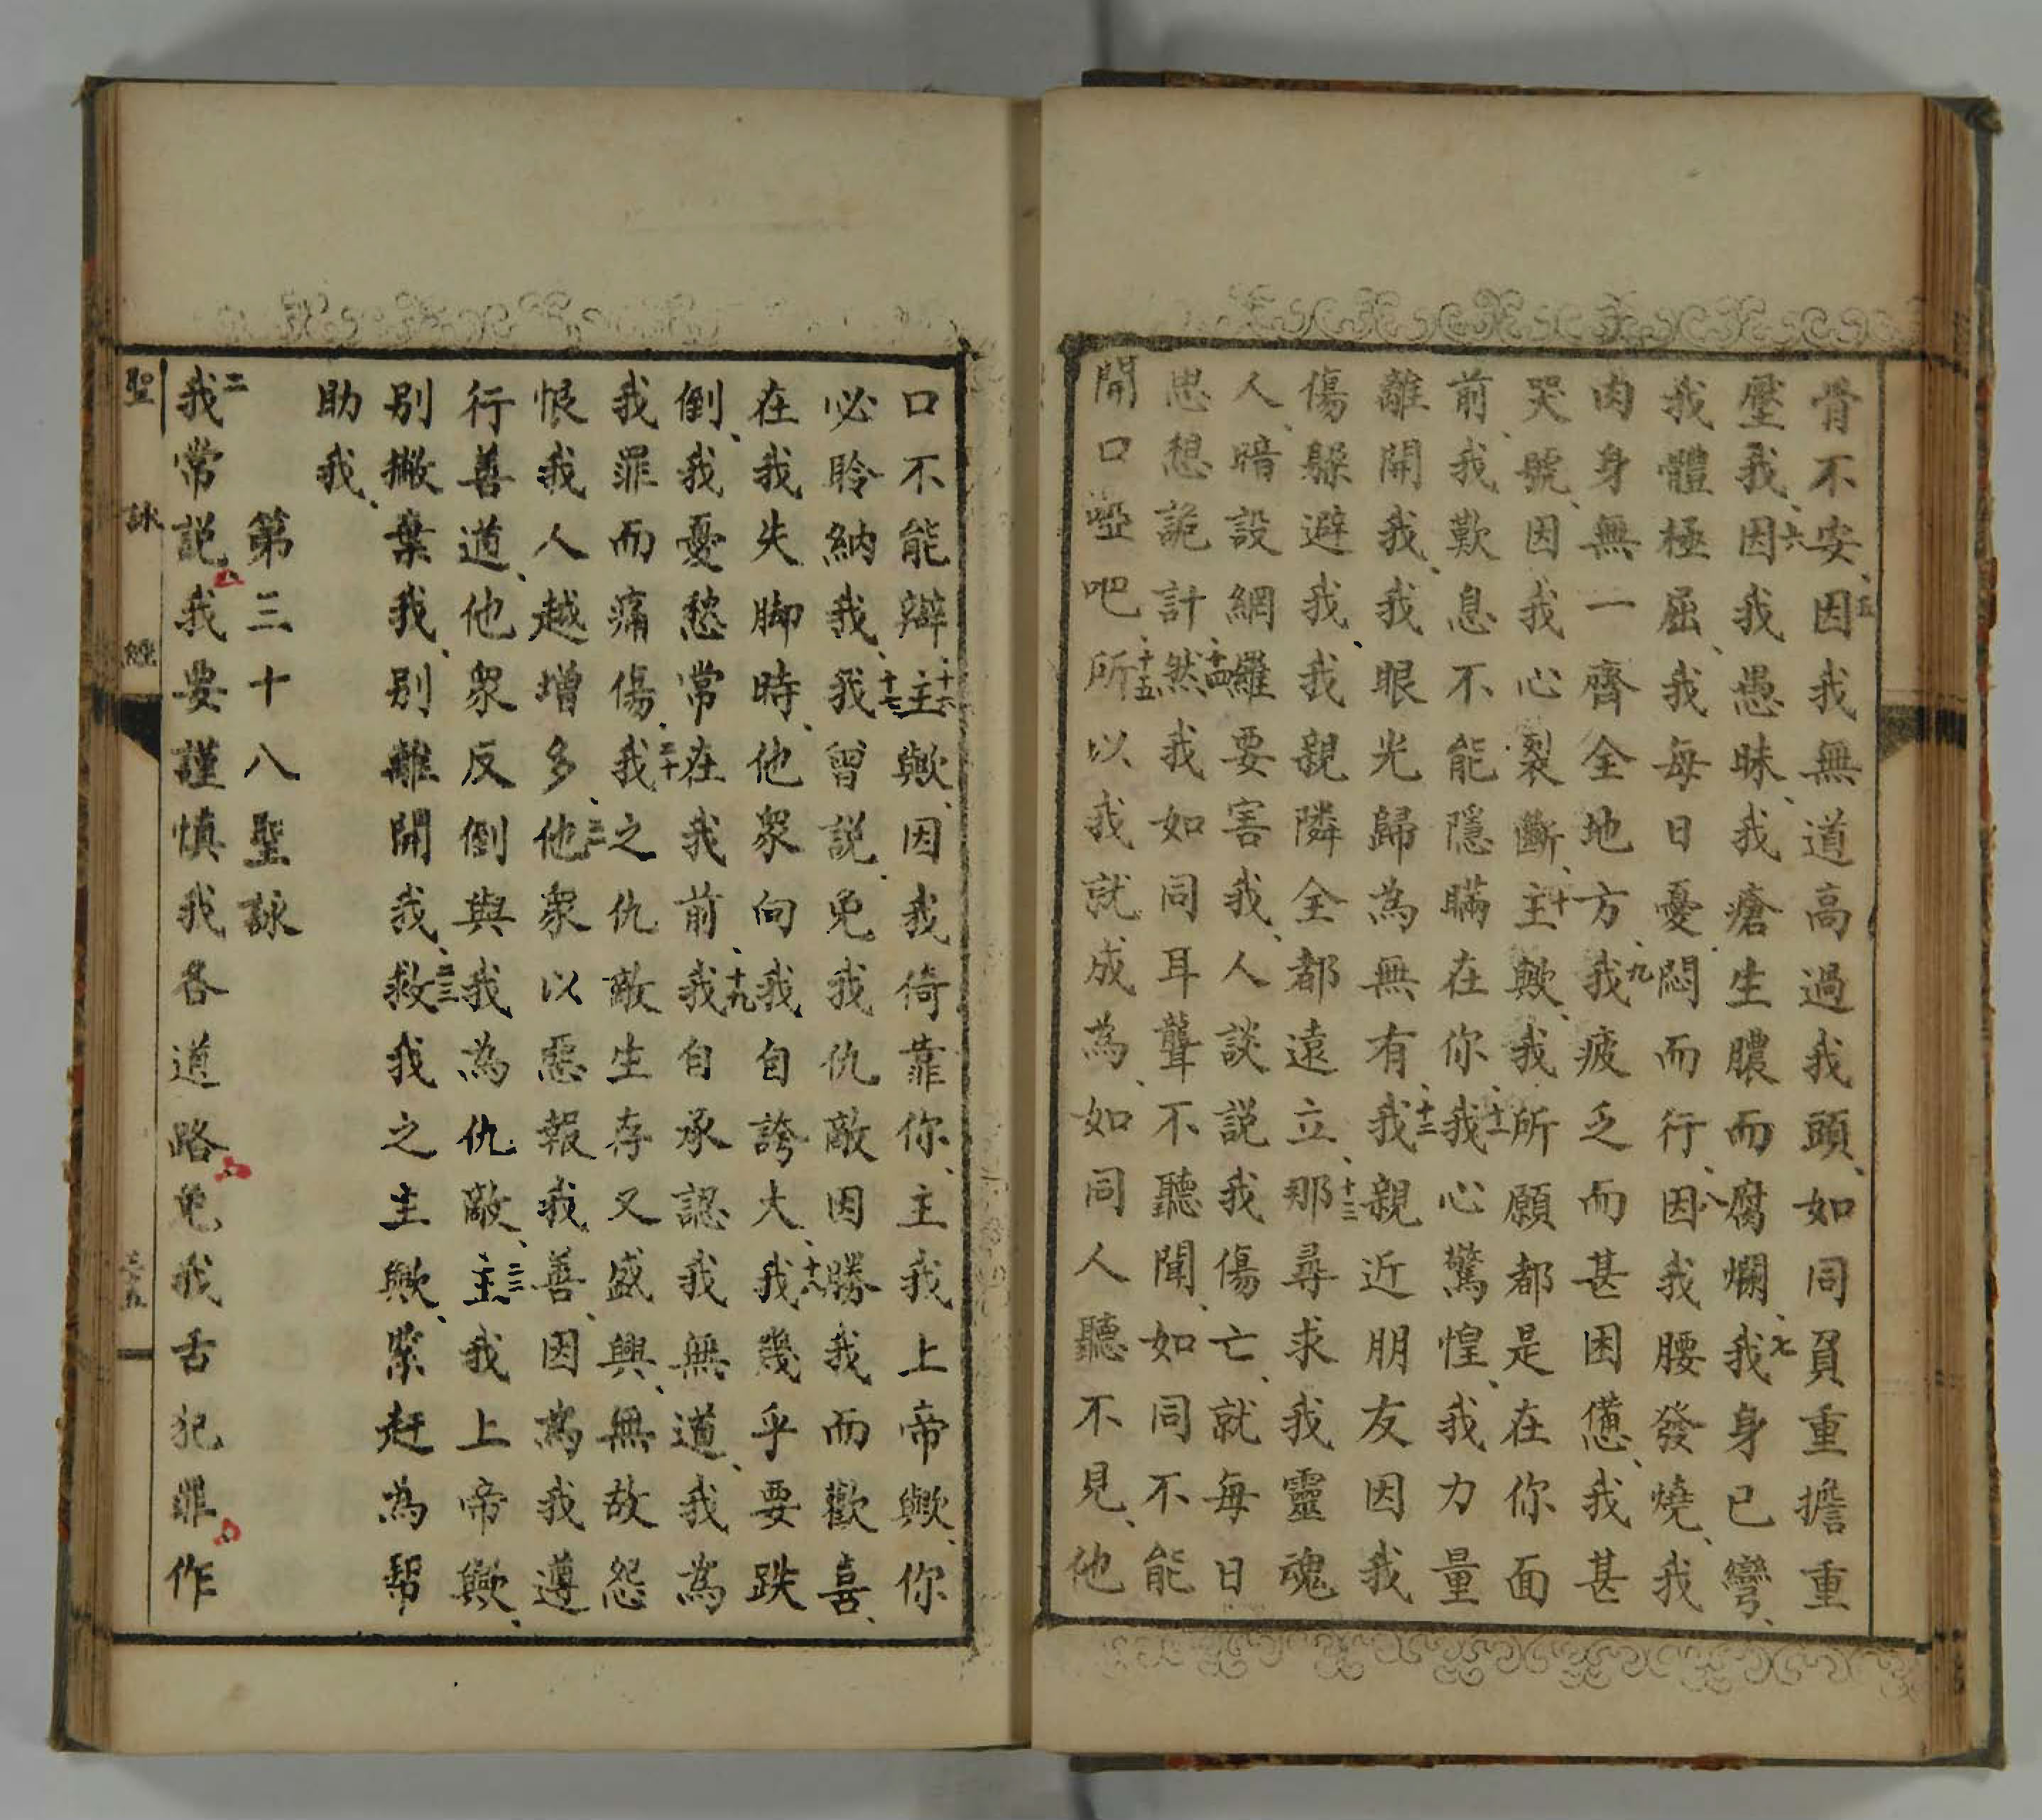 骨不安、五因我無道高過我頭、如同負重擔重
壓我、六因我愚昧、我瘡生膿而腐爛、七我身已彎、
我體極屈、我每日憂悶而行、八因我腰發燒、我
肉身無一齊全地方、九我疲乏而甚困憊、我甚
哭號、因我心裂斷、十主歟、我所願都是在你面
前、我歎息不能隱瞞在你、十一我心驚惶、我力量
離開我、我眼光歸為無有、十二我親近朋友因我
傷躲避我、我親隣全都遠立、十三那尋求我靈魂
人、暗設網羅要害我、人談説我傷亡、就每日
思想詭計、十四然我如同耳聾不聽聞、如同不能
開口啞吧、十五所以我就成為、如同人聽不見、他
口不能辯、十六主歟、因我倚靠你、主我上帝歟、你
必聆納我、十七我曾説、免我仇敵因勝我而歡喜、
在我失脚時、他衆向我自誇大、十八我幾乎要跌
倒、我憂愁常在我前、十九我自承認我無道、我為
我罪而痛傷、二十我之仇敵生存又盛興、無故怨
恨我人越增多、二一他衆以惡報我善、因為我遵
行善道、他衆反倒與我為仇敵、二二主我上帝歟、
別撇棄我、別離開我、二三救我之主歟、緊赶為幫
助我、
第三十八聖詠
二我常説我要謹慎我各道路免我舌犯罪作
聖詠經 三十五